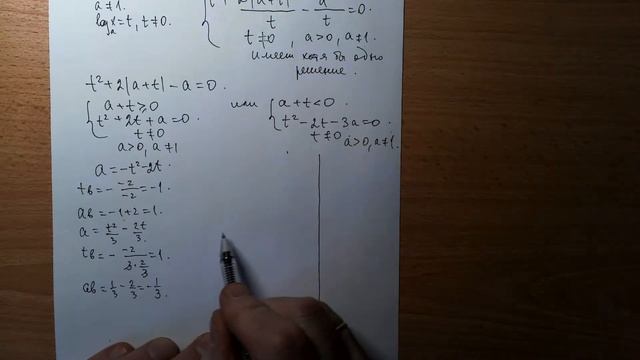 a≠1.
log_a x = t, t≠0.
t + 2|a+t|/t − a/t = 0.
t≠0, a>0, a≠1.
Имеет хотя бы одно
решение.
t² + 2|a+t| − a = 0.
{ a+t⩾0 или { a+t<0
t² + 2t + a = 0 t² − 2t − 3a = 0
t≠0 t≠0
a>0, a≠1 a>0, a≠1.
a = −t² − 2t
tв = − −2/−2 = −1.
aв = −1+2 = 1.
a = t²/3 − 2t/3.
tв = − −2/(3·2/3) = 1.
aв = 1/3 − 2/3 = −1/3.